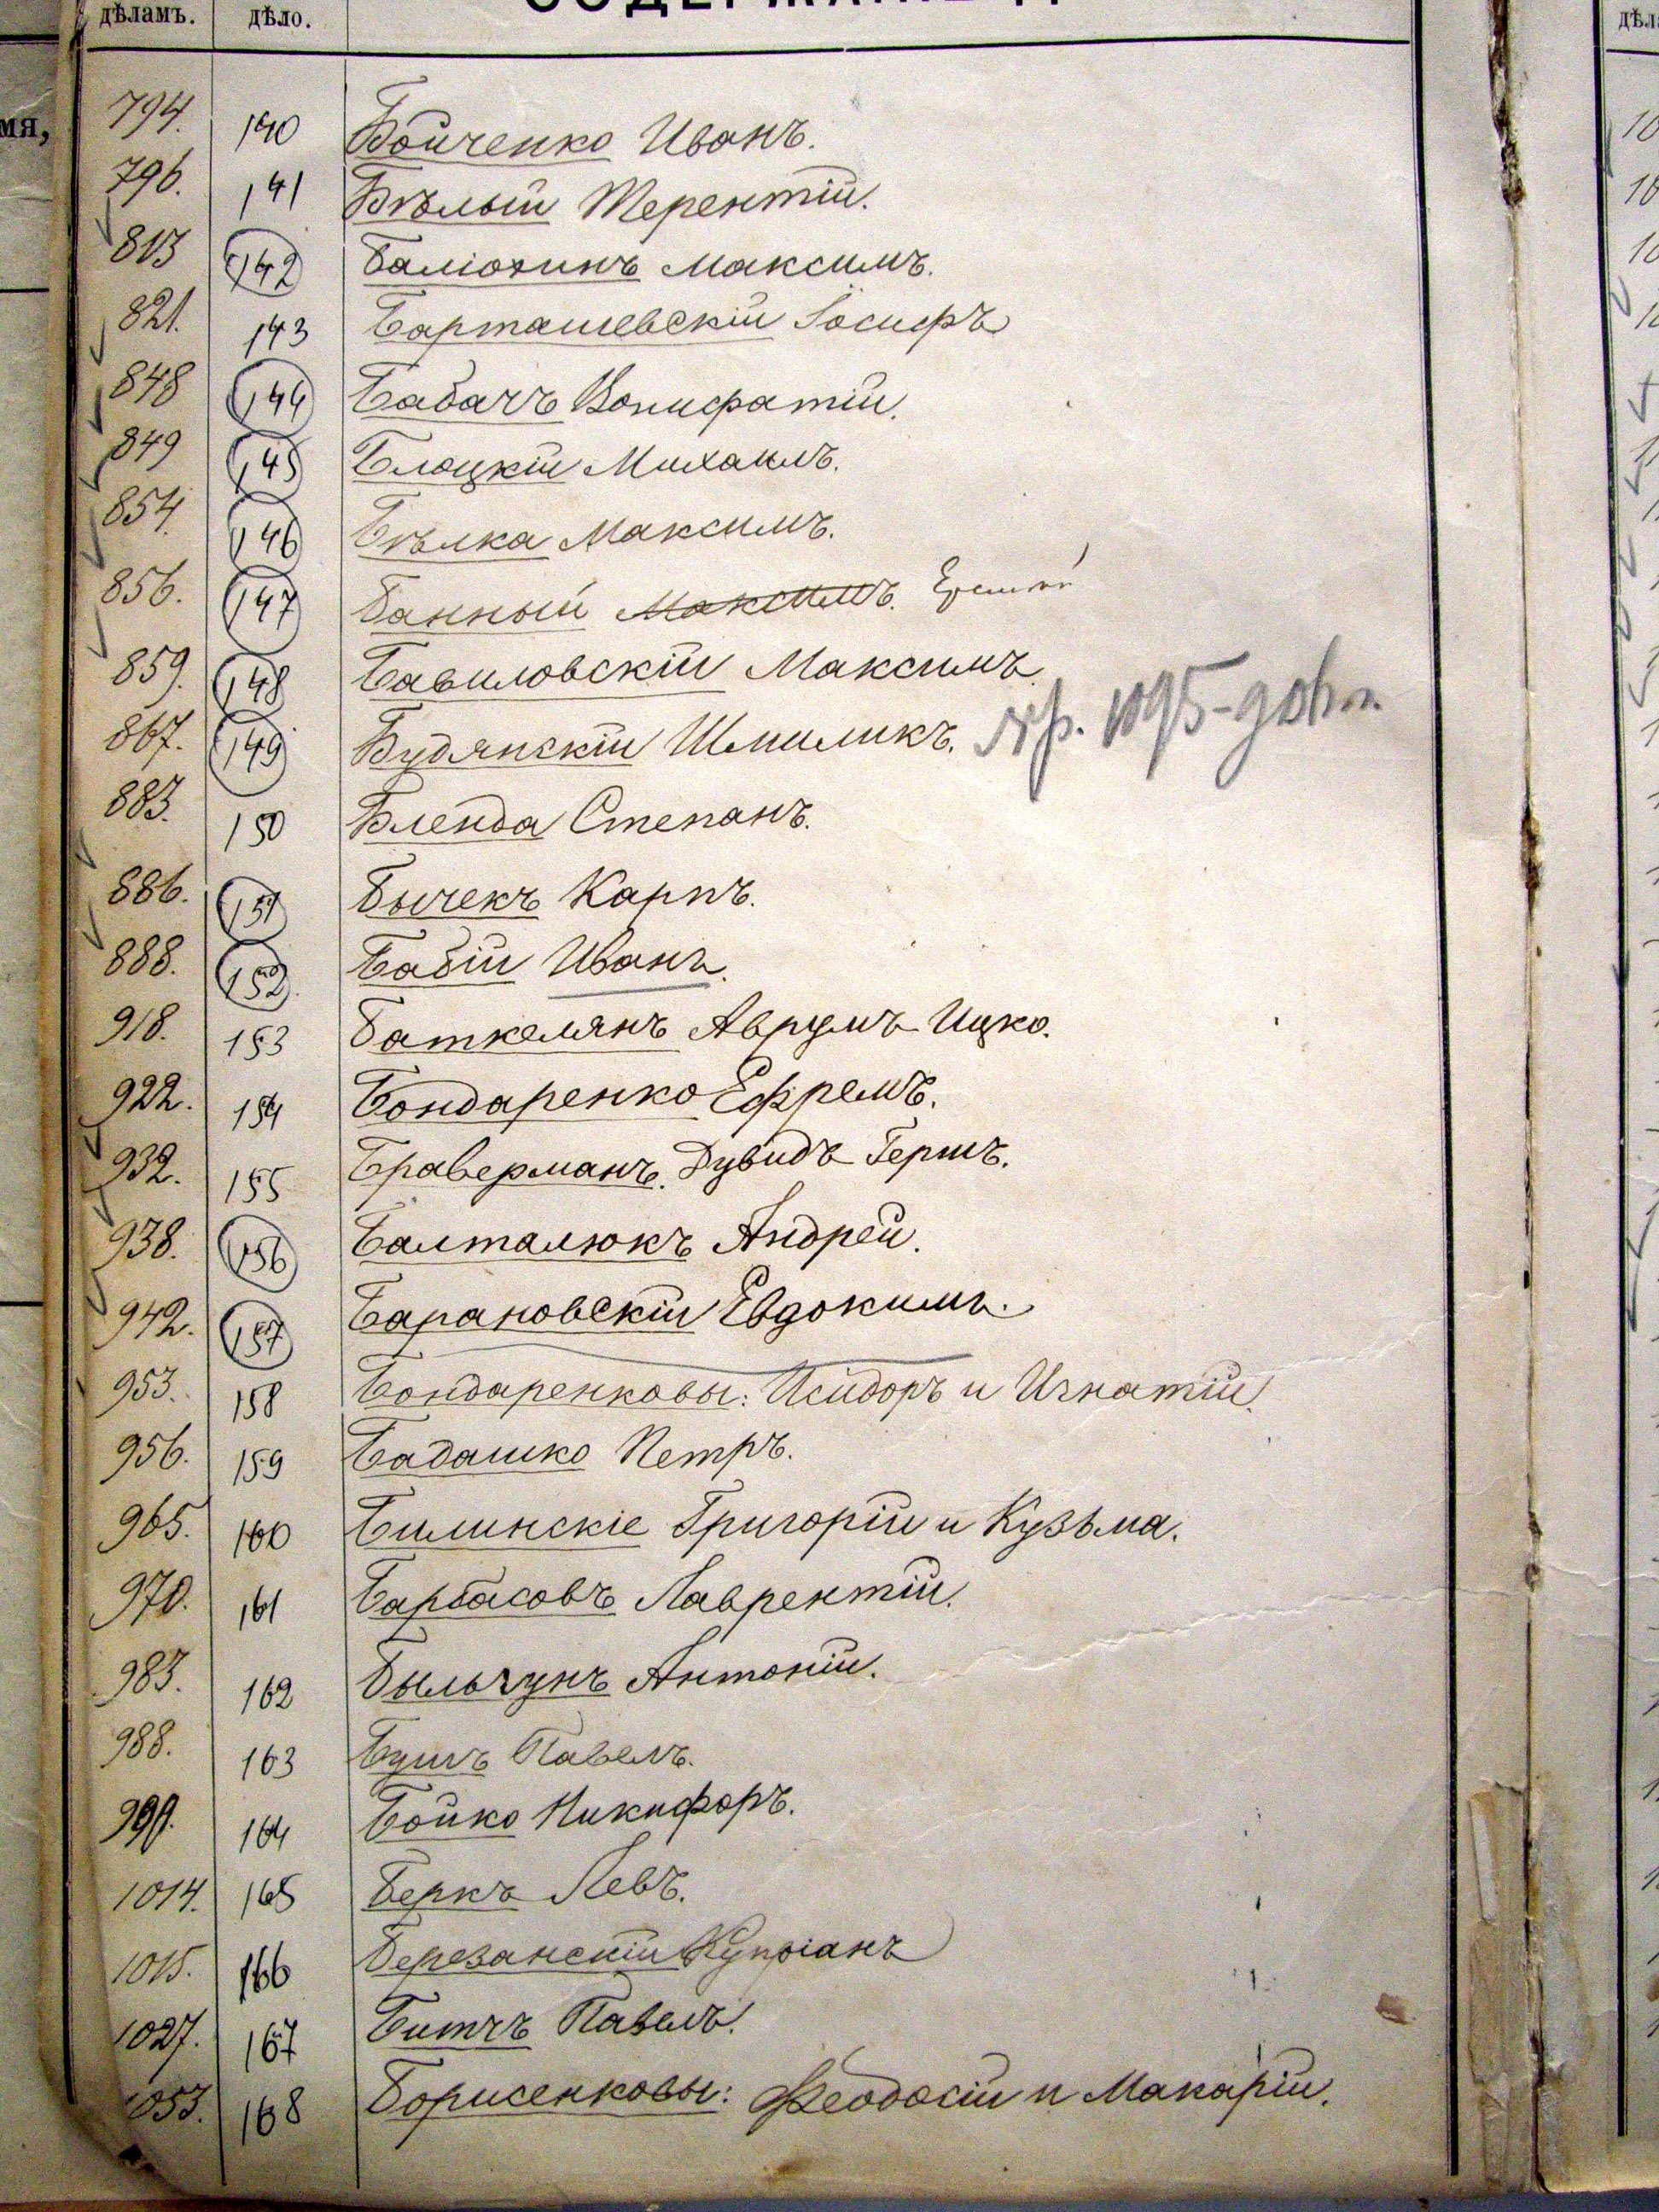 дѣламъ. дѣло.
794. 140 Бойченко Иванъ.
796. 141 Бѣлый Терентій.
813 142 Баліозинъ Максимъ.
821. 143 Барташевскій Іосифъ
848 144 Бабачъ Вонифатій.
849 145 Блоцкій Михаилъ.
854. 146 Бѣлка Максимъ.
856. 147 Банный Максимъ.
859. 148 Бавиловскій Максимъ.
867. 149 Будянскій Шмиликъ. 1095
883. 150 Бленда Степанъ.
886. 151 Бычекъ Карпъ.
888. 152 Бабій Иванъ.
918. 153 Баткелянъ Аврумъ Ицко.
922. 154 Бондаренко Ефремъ.
932. 155 Браверманъ Дувидъ Гершъ.
938. 156 Балталюкъ Андрей.
942. 157 Барановскій Евдокимъ.
953. 158 Бондаренковы: Исидоръ и Игнатій.
956. 159 Бадашко Петръ.
965. 160 Билинскіе Григорій и Кузьма.
970. 161 Барбасовъ Лаврентій.
983. 162 Быльчунъ Антоній.
988. 163 Бушъ Павелъ.
164 Бойко Никифоръ.
1014. 165 Беркъ Левъ.
1015. 166 Березанскій Купріанъ
1027. 167 Битчъ Павелъ.
1053. 168 Борисенковы: Феодосій и Макарій.